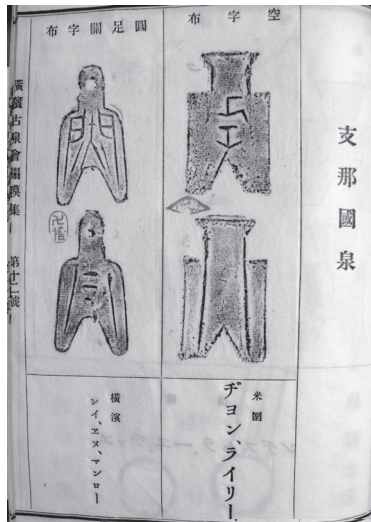 支那國泉
空字布
米國
ヂヨン、ライリー
圓足關字布
橫濱
シイ、ヱヌ、マンロー
橫濱古泉會搨摸集